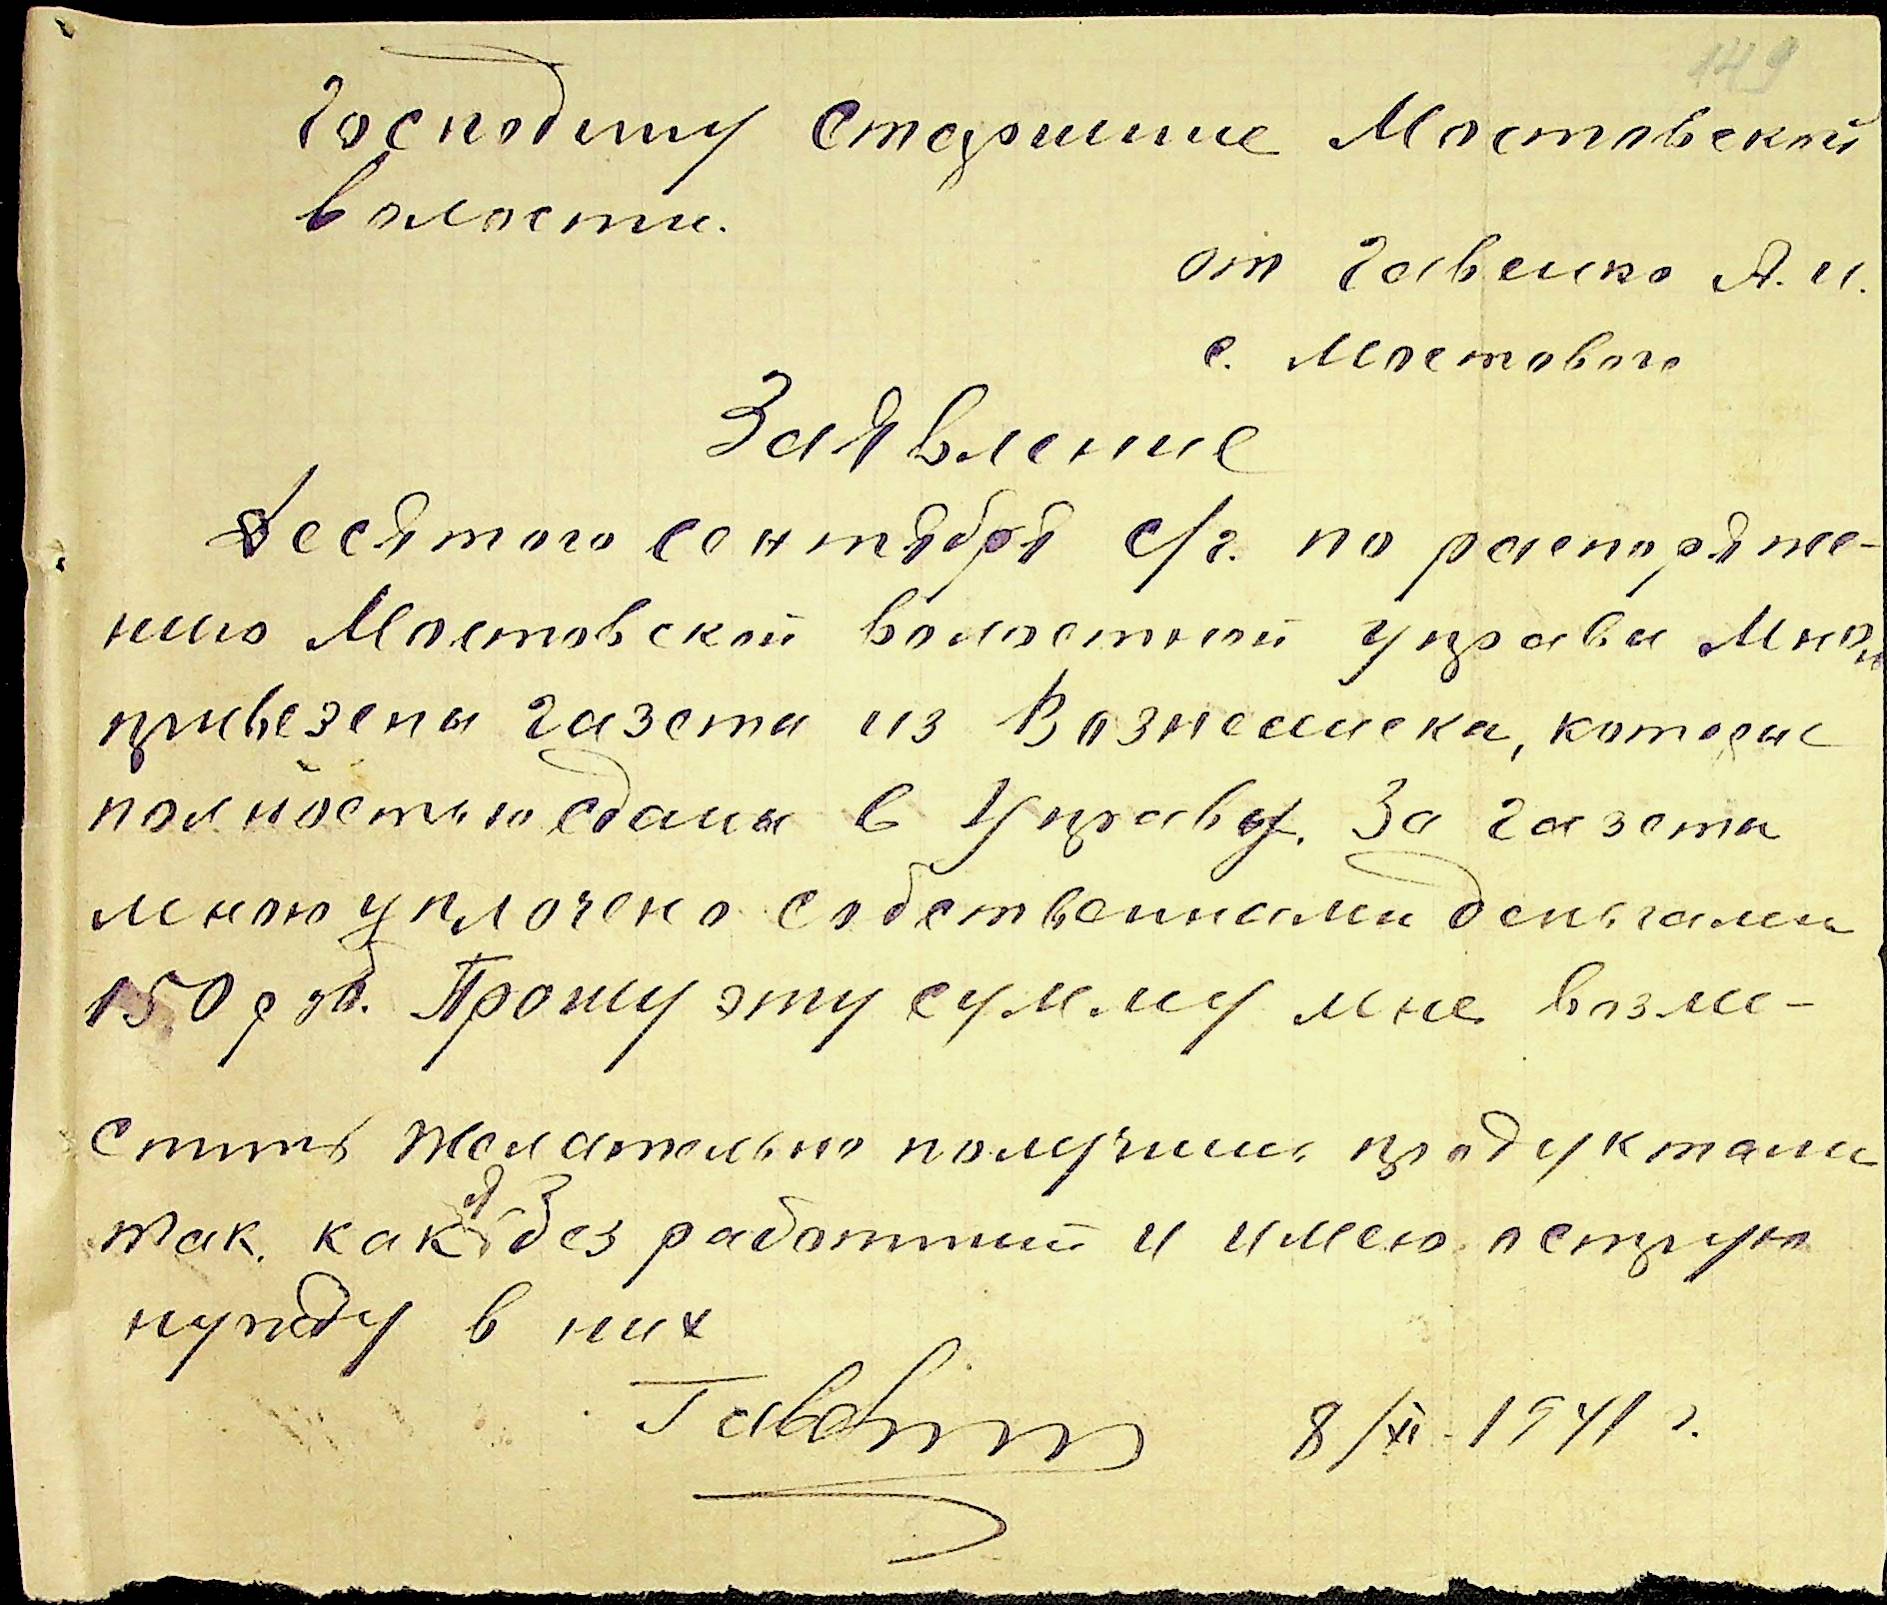 149
Господину старшине Мостовской
волости.
от Гавенко А.И.
с. Мостового
Заявление
Десятого сентября с/г. по распоряже-
нию Мостовской волостной управы Мною
привезены газеты из Вознесенска, которые
полностью сданы в Управу. За газеты
мною уплочено собственнами деньгами
150 руб. Прошу эту сумму мне возме-
стить желательно получить продуктами
так как я без работный и имею острую
нужду в них
8/XI-1941 г.